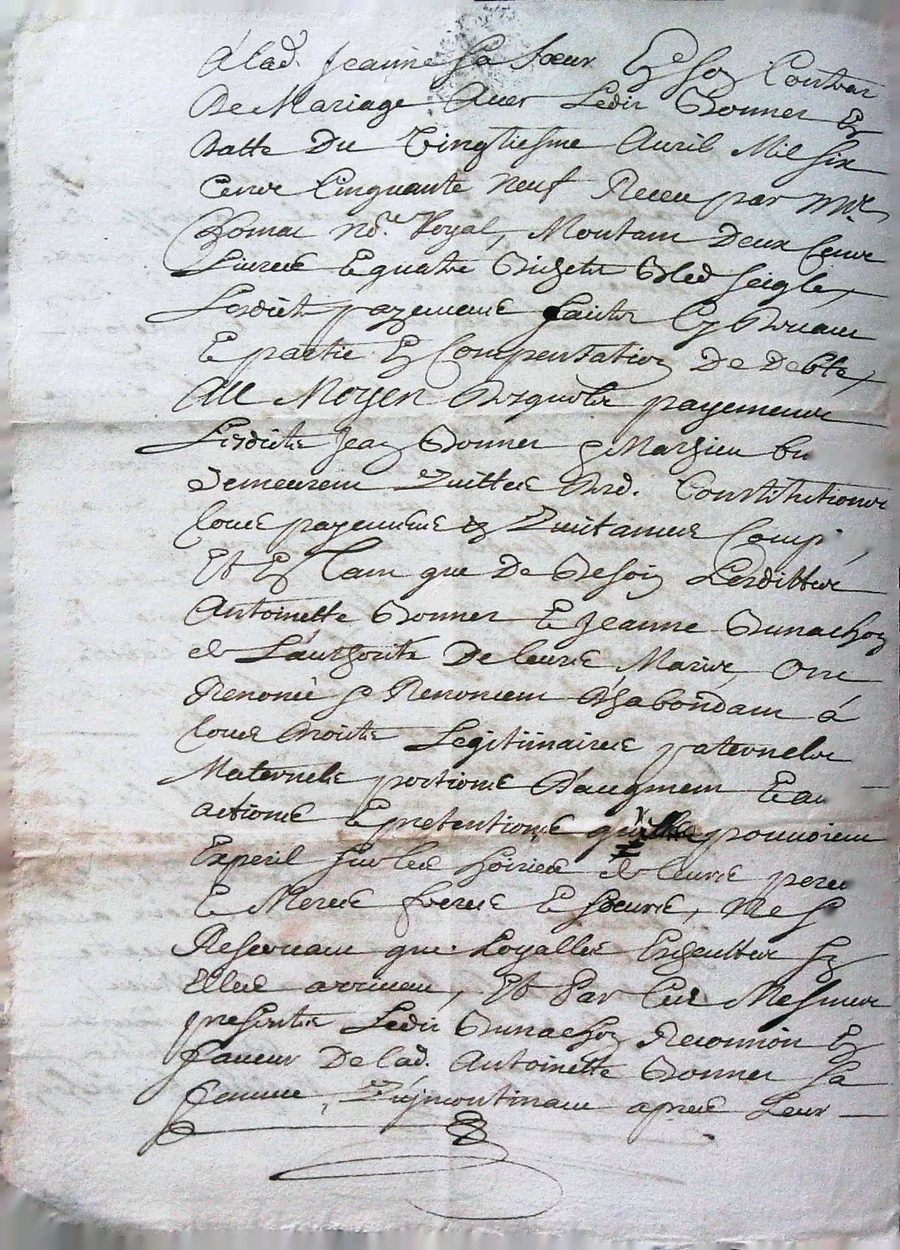 A lad. Jeanne sa sœur En son Contrat
De Mariage Avec Ledit Bonnet En
Datte Du Vingtiesme Avril Mil six
Cents Cinquante neuf Receu par Mr
no.re Royal, Montant Deux Cents
Livres Et quatre Bichets Bled seigle,
Lesdits payements faits Cy Devant
Et partie En Compensation De Debte,
Au Moyen Desquels payements
Lesdits Jean Bonnet & Mathieu
Demeurent Quittes Desd. Constitutions
Tous payements Et Quitances Comp.
Et En Tant que De Besoin Lesdittes
Antoinette Bonnet Et Jeanne Dunachon
de L'authorité De leurs Maris, Ont
Renoncé & Renoncent D'habondant á
Tous Droits Legitimaires paternels
Maternels portions D'augment Et au
actions Et pretentions qu'elles pouvoient
sur les hoiries de leurs peres
Et Meres freres Et sœurs, Ne se
Reservant que Loyalles Escheuttes sy
Elles arrivent, Et Par Ces Mesmes
presentes Ledit Dunachon Reconnoit En
faveur De lad. Antoinette Bonnet sa
femme, apres Leur